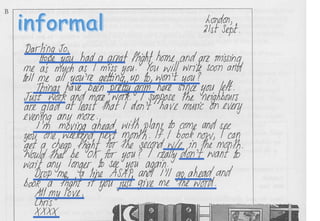 B
informal
London,
21st Sept.
Darling Jo,
Hope you had a great flight home and are missing
me as much as I miss you. You will write soon and
tell me all you're getting up to, won't you?
Things have been pretty grim here since you left.
Just work and more work. I suppose the neighbours
are glad at least that I don't have music on every
evening any more.
I'm moving ahead with plans to come and see
you one weekend next month. If I book now, I can
get a cheap flight for the second w/e in the month.
Would that be 'OK' for you? I really don't want to
wait any longer to see you again.
Drop me a line ASAP, and I'll go ahead and
book a flight if you just give me the word.
All my love,
Chris
XXXX